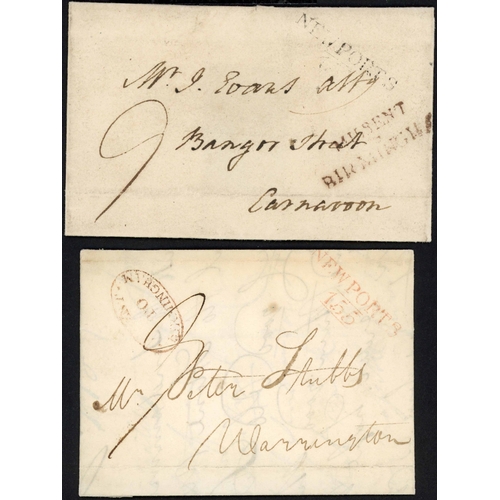 NEWPORT S
Mr. J. Evans atty
MISSENT
BIRMINGHAM
9
Bangor Street
Carnarvon
NEWPORT S
155
BIRMINGHAM
10
9
Mr. Peter Stubbs
Warrington